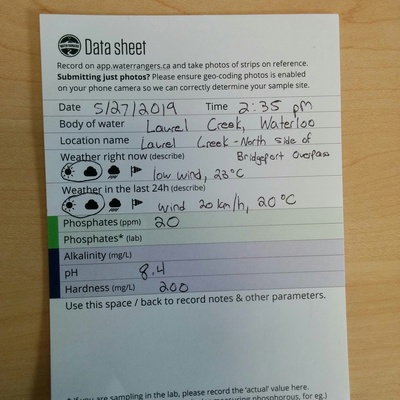 Data sheet
Record on app.waterrangers.ca and take photos of strips on reference.
Submitting just photos? Please ensure geo-coding photos is enabled
on your phone camera so we can correctly determine your sample site.
Date 5/27/2019 Time 2:35 pm
Body of water Laurel Creek, Waterloo
Location name Laurel Creek - North side of
Bridgeport Overpass
Weather right now (describe)
low wind, 23°C
Weather in the last 24h (describe)
wind 20 km/h, 20°C
Phosphates (ppm) 20
Phosphates* (lab)
Alkalinity (mg/L)
pH 8.4
Hardness (mg/L) 200
Use this space / back to record notes & other parameters.
* If you are sampling in the lab, please record the 'actual' value here.
measuring phosphorous, for eg.)